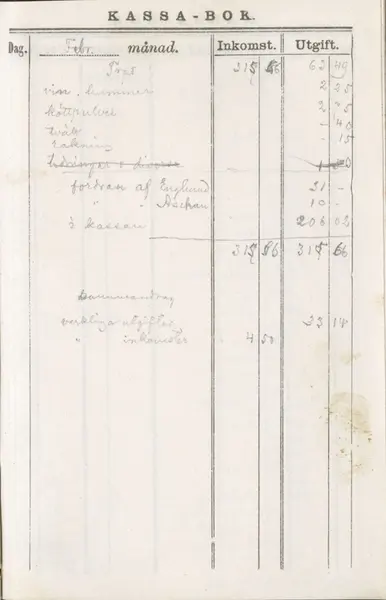 KASSA-BOK.
Dag. Febr. månad. Inkomst. Utgift.
Trp 315 56 62 49
vin, hummer 2 25
köttpulver 2 25
tvätt - 40
rakning - 15
tidningar o diverse
fordran af Englund 31 -
" " Aschan 10 -
i kassan 206 02
315 56 315 56
Sammandrag
verkliga utgifter 23 14
" inkomster 4 50